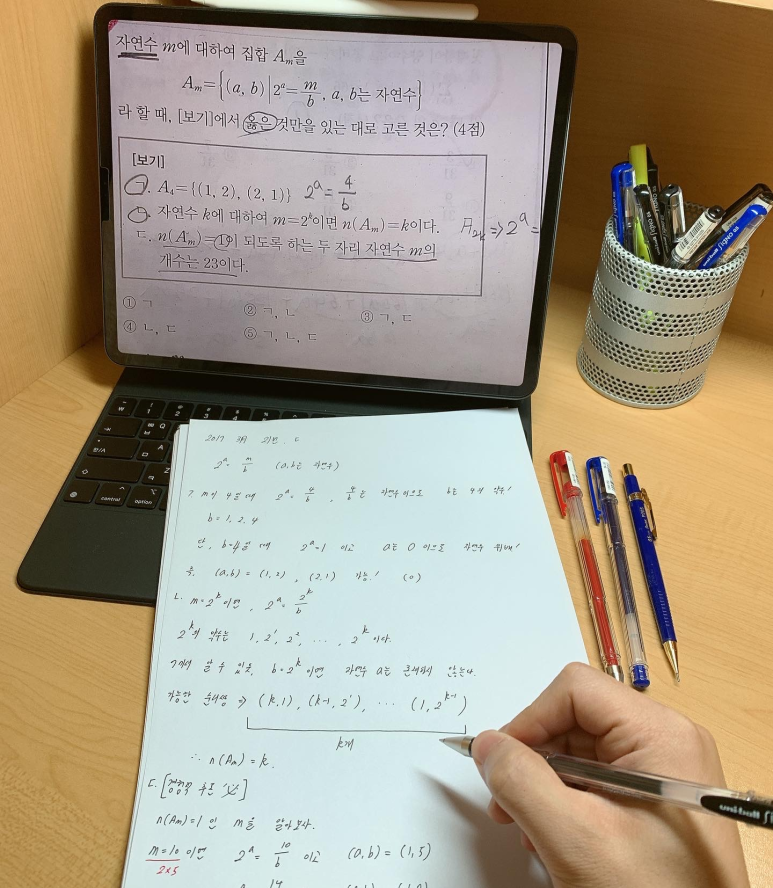 자연수 m에 대하여 집합 Aₘ을
Aₘ={(a, b)|2ᵃ=m/b, a, b는 자연수}
라 할 때, [보기]에서 옳은 것만을 있는 대로 고른 것은? (4점)
[보기]
ㄱ. A₄={(1, 2), (2, 1)} 2ᵃ=4/b
ㄴ. 자연수 k에 대하여 m=2ᵏ이면 n(Aₘ)=k이다. A₂ₖ⇒2ᵃ=
ㄷ. n(Aₘ)=1이 되도록 하는 두 자리 자연수 m의
개수는 23이다.
① ㄱ ② ㄱ, ㄴ ③ ㄱ, ㄷ
④ ㄴ, ㄷ ⑤ ㄱ, ㄴ, ㄷ
한/A
control option
2017 21번. ㄷ
2ᵃ=m/b (a,b는 자연수)
ㄱ. m이 4일 때 2ᵃ=4/b, 4/b는 자연수이므로 b는 4의 약수!
b=1, 2, 4
단, b=4일 때 2ᵃ=1 이고 a는 0 이므로 자연수 위배!
즉, (a,b) = (1,2), (2,1) 가능! (o)
ㄴ. m=2ᵏ이면, 2ᵃ=2ᵏ/b
2ᵏ의 약수는 1, 2¹, 2², ···, 2ᵏ 이다.
여기서 알 수 있듯, b=2ᵏ 이면 자연수 a는 존재하지 않는다.
가능한 순서쌍 ⇒ (k,1), (k-1, 2¹), ··· (1, 2ᵏ⁻¹)
k개
∴ n(Aₘ)=k.
ㄷ.
n(Aₘ)=1 인 m을 알아보자.
m=10 이면 2ᵃ=10/b 이고 (a,b) = (1,5)
2×5
14
uni-ball